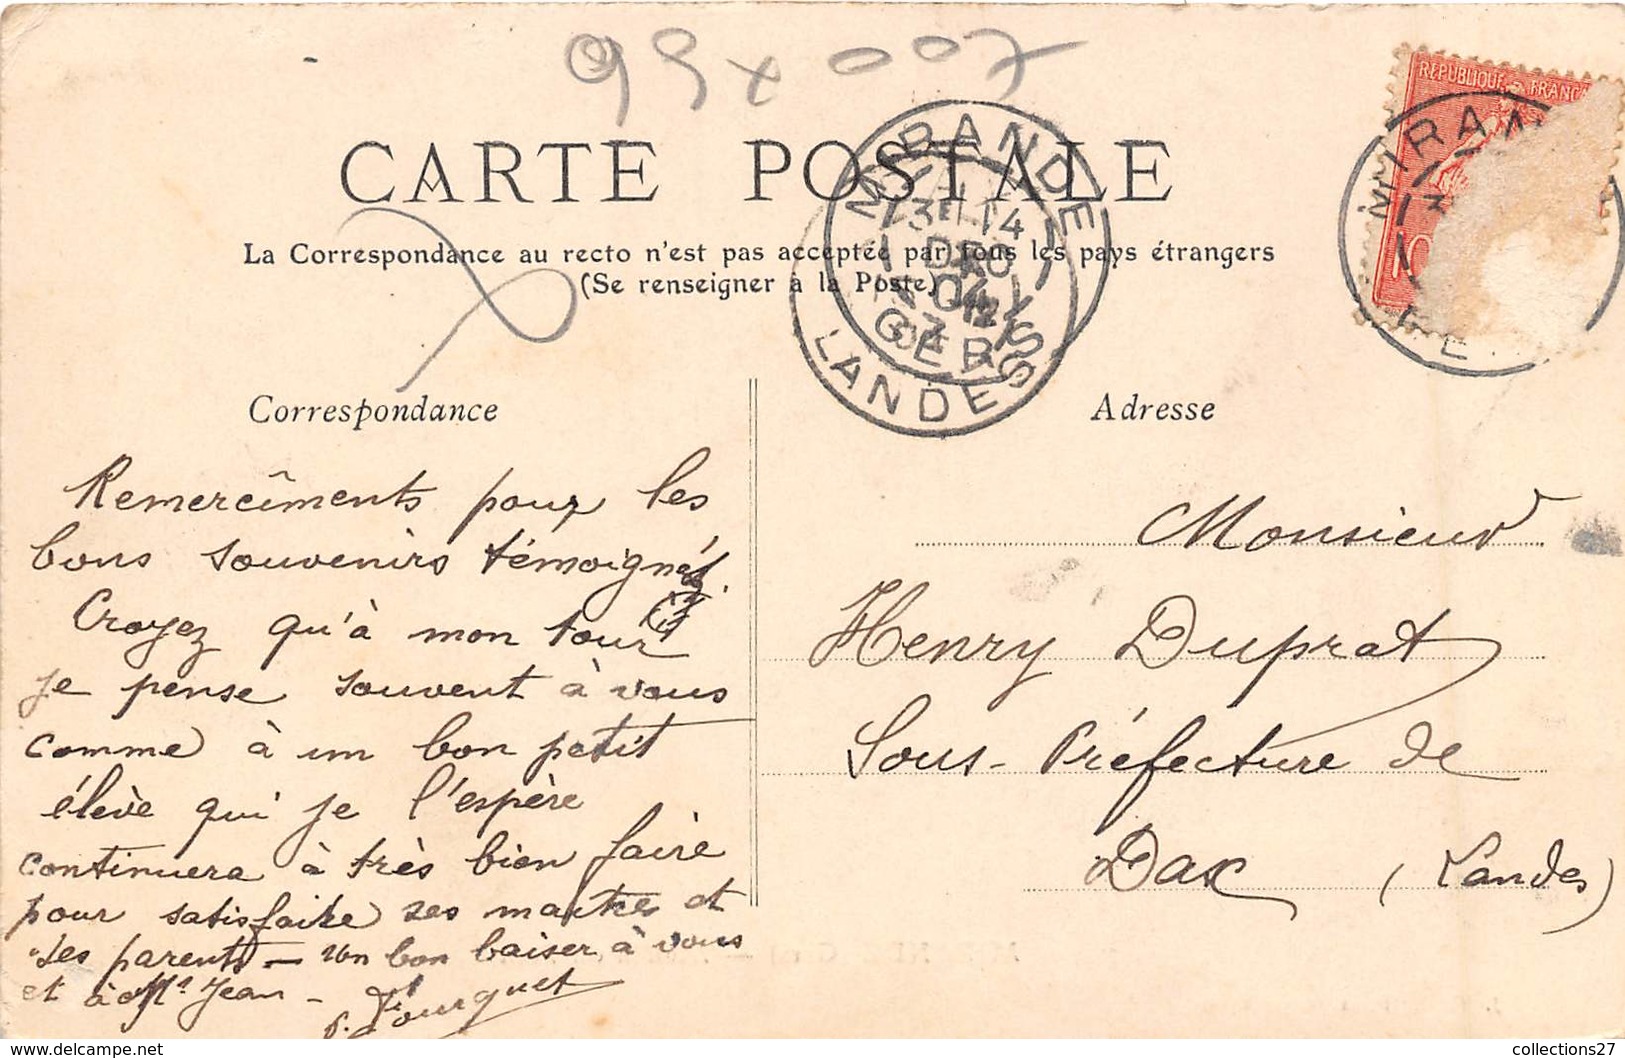 99 x 007
RÉPUBLIQUE FRANÇA
10
MIRAN
CARTE POSTALE
MIRANDE
3E 14
DEC
04
GERS
LANDES
La Correspondance au recto n'est pas acceptée par tous les pays étrangers
(Se renseigner à la Poste)
Correspondance
Adresse
Remercîments pour les
bons souvenirs témoignés.
Croyez qu'à mon tour
je pense souvent à vous
comme à un bon petit
élève qui je l'espère
continuera à très bien faire
pour satisfaire ses maîtres et
ses parents — Un bon baiser à vous
et à Mr Jean -
Fourquet
Monsieur
Henry Duprat
Sous-Préfecture de
Dax (Landes)
collections27